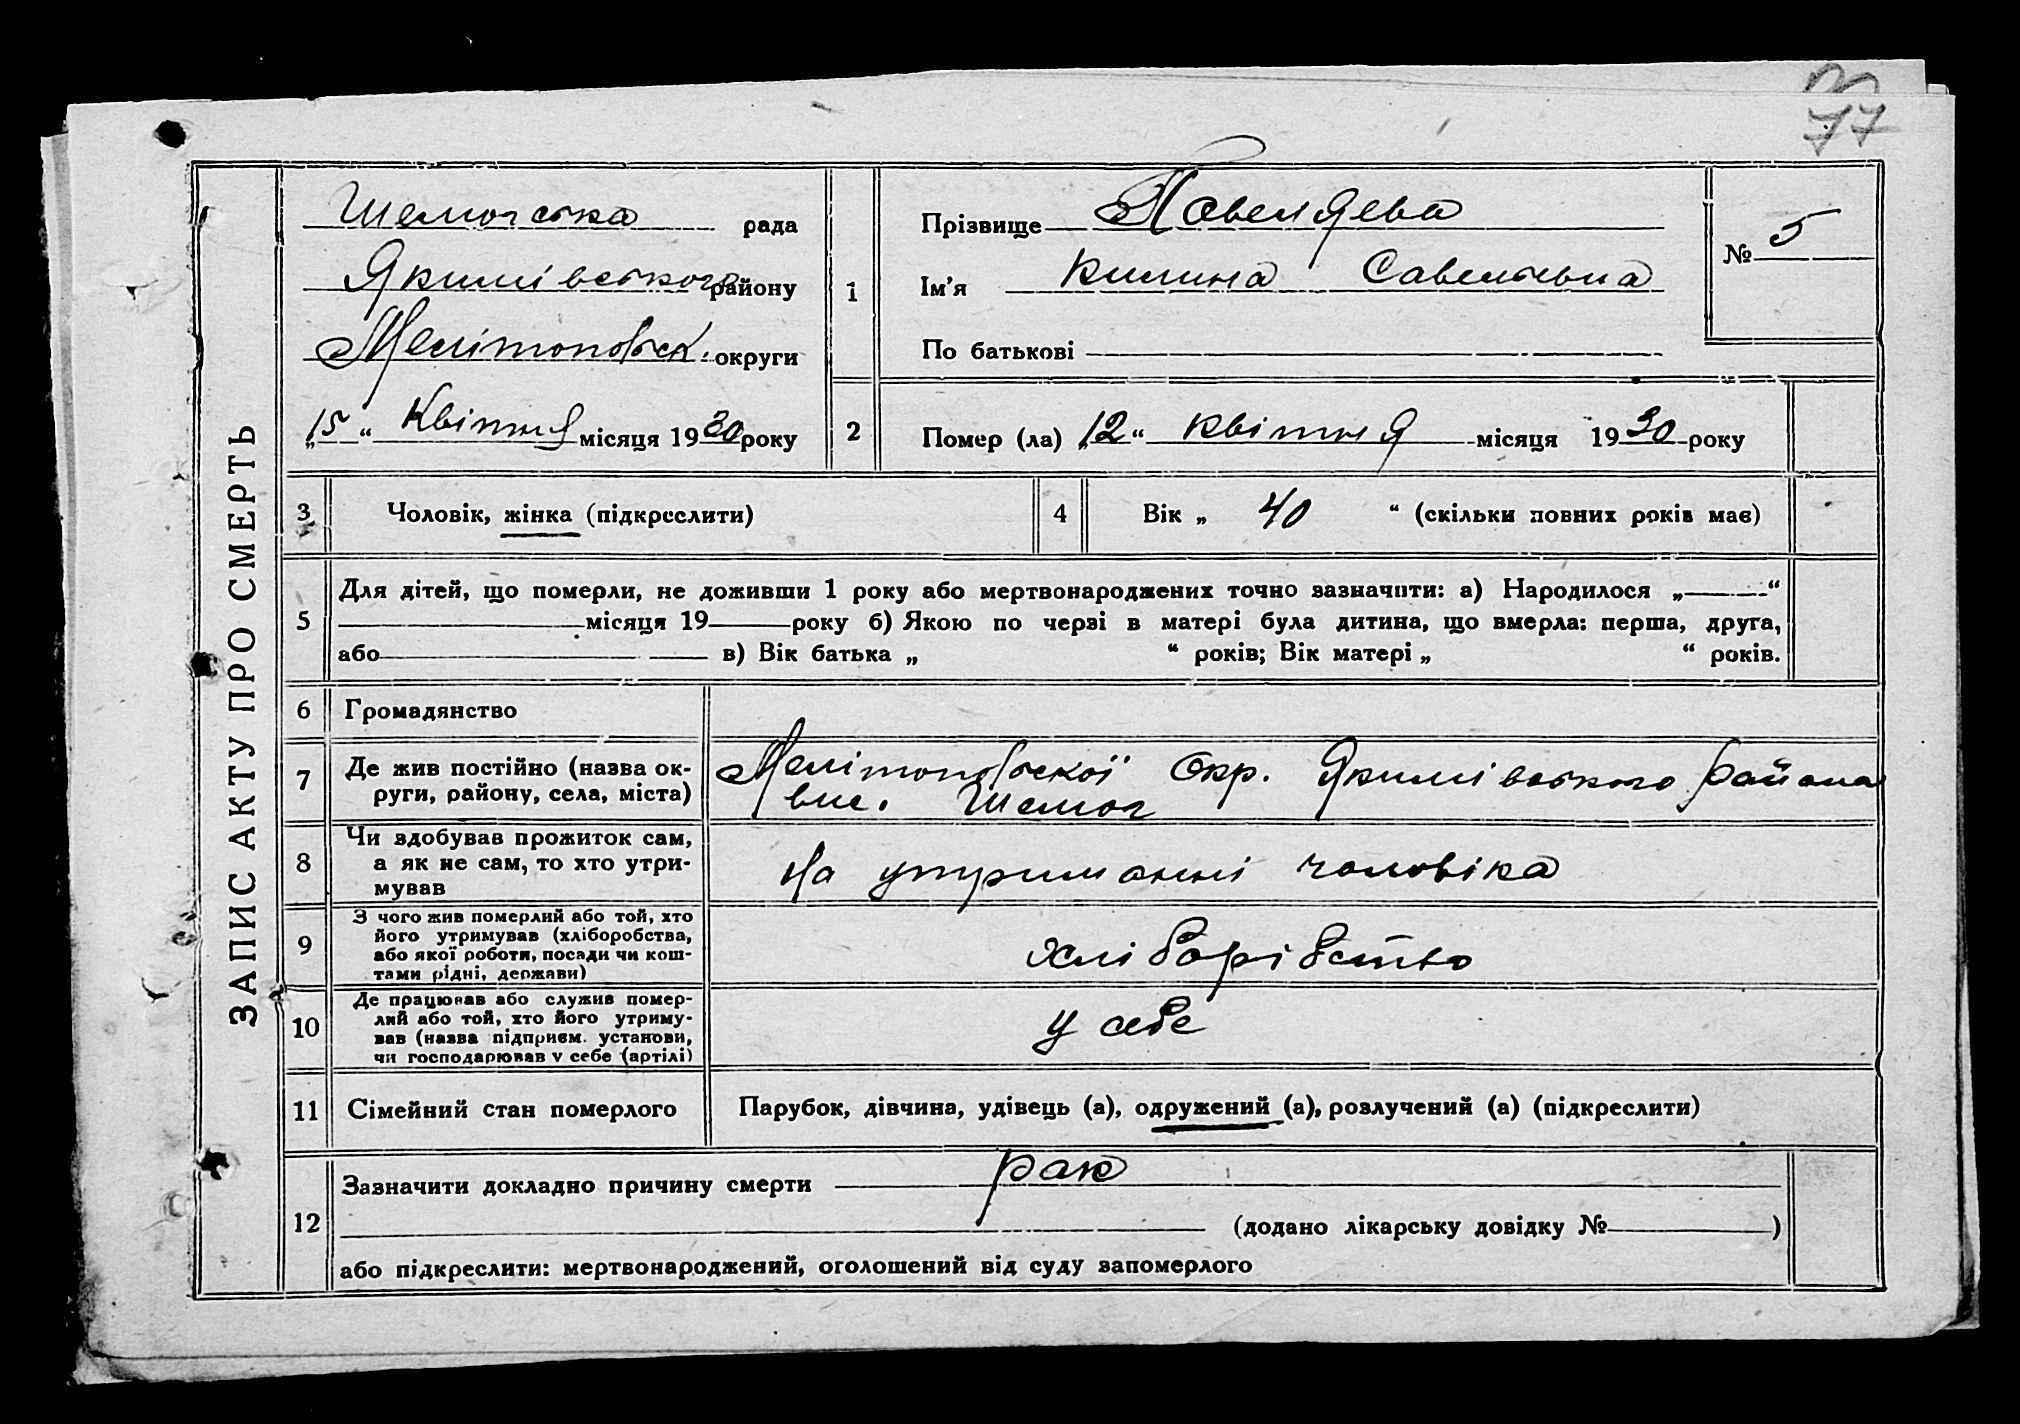 77
ЗАПИС АКТУ ПРО СМЕРТЬ
Шемогська рада
Якимівського району
Мелітопольск. округи
„15“ Квітня місяця 1930 року
1
Прізвище
Ім'я Килина Савельевна
По батькові
№ 5
2
Помер (ла) „12“ квітня місяця 1930 року
3
Чоловік, жінка (підкреслити)
4
Вік „ 40 “ (скільки повних років має)
5
Для дітей, що померли, не доживши 1 року або мертвонароджених точно зазначити: а) Народилося „ “
місяця 19 року б) Якою по черзі в матері була дитина, що вмерла: перша, друга,
або в) Вік батька „ “ років; Вік матері „ “ років.
6
Громадянство
7
Де жив постійно (назва ок-
руги, району, села, міста)
Мелітопольської Окр. Якимівського Района
вис. Шемог
8
Чи здобував прожиток сам,
а як не сам, то хто утри-
мував
На утриманні чоловіка
9
З чого жив померлий або той, хто
його утримував (хліборобства,
або якої роботи, посади чи кош-
тами рідні, держави)
хліборобство
10
Де працював або служив помер-
лий або той, хто його утриму-
вав (назва підприєм. установи,
чи господарював у себе (артілі)
у себе
11
Сімейний стан померлого
Парубок, дівчина, удівець (а), одружений (а), розлучений (а) (підкреслити)
12
Зазначити докладно причину смерти рак
(додано лікарську довідку № )
або підкреслити: мертвонароджений, оголошений від суду запомерлого